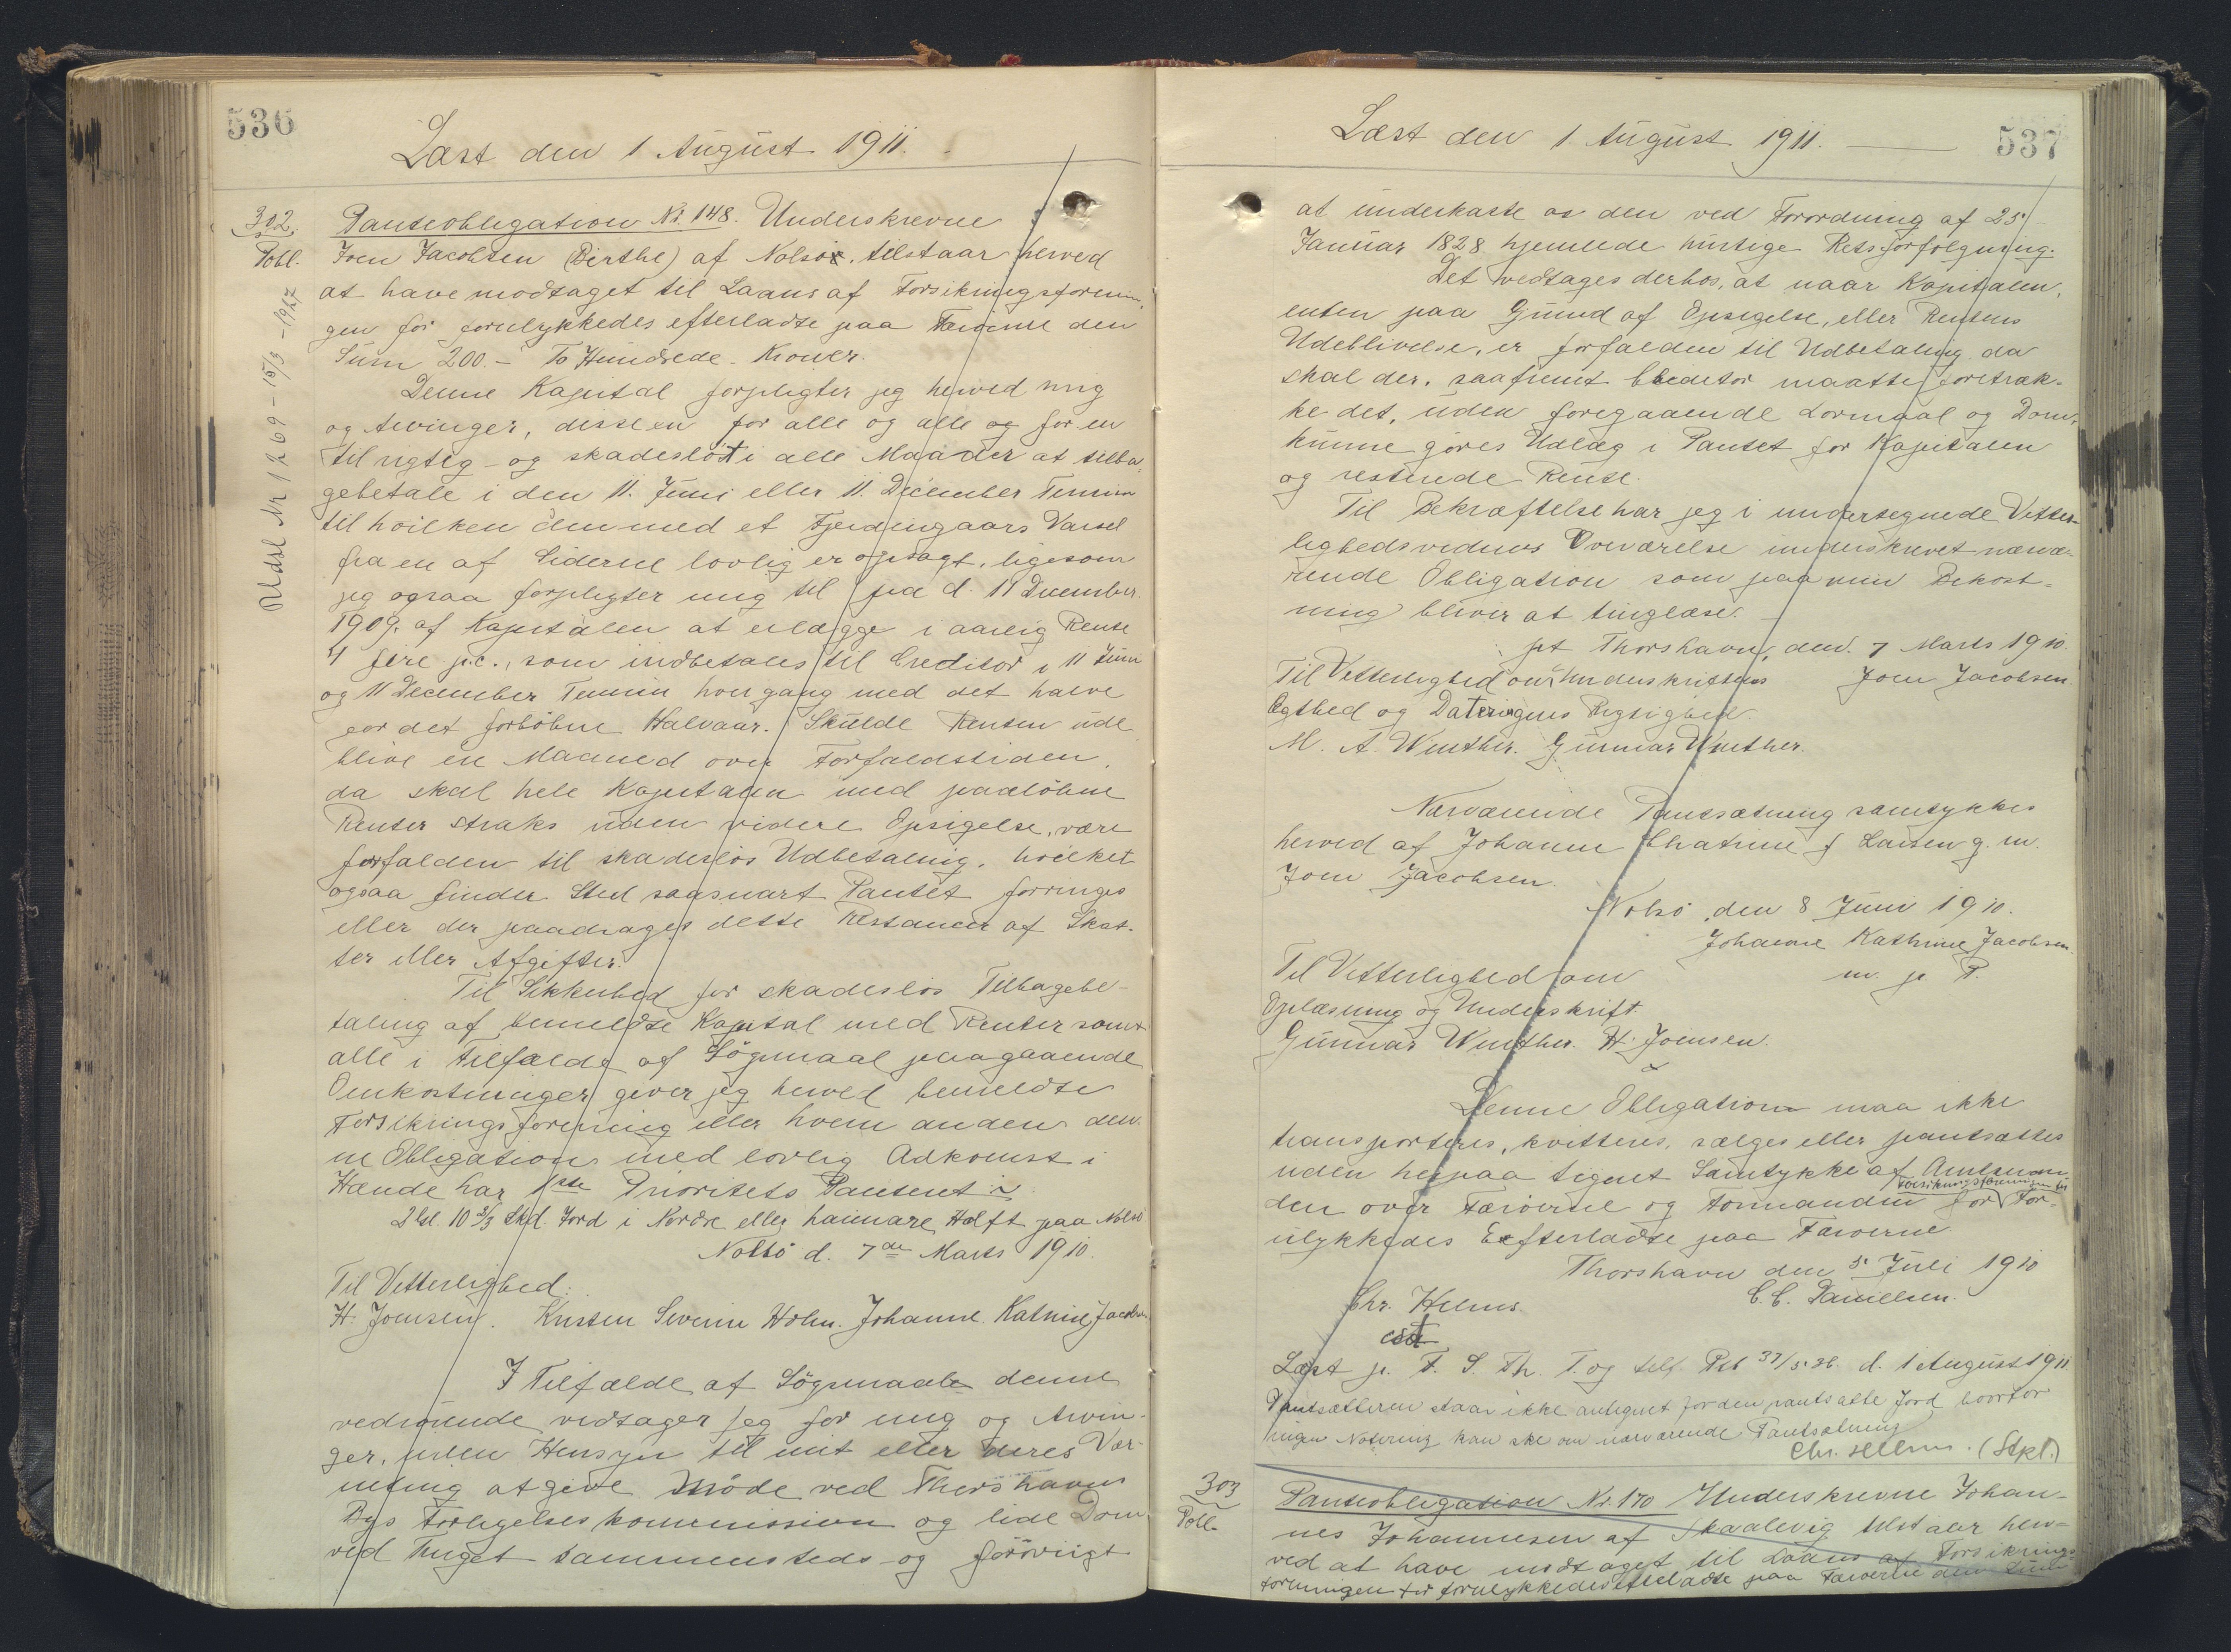 536
Læst den 1 August 1911.
302.
Pobl.
Udsl Nr 1269 - 15/3 - 1967
Panteobligation Nr. 148. Underskrevne
Joen Jacobsen (Birthe) af Nolsø, tilstaar herved
at have modtaget til Laans af Forsikringsforenin,
gen for forulykkedes efterladte paa Færøerne den
Sum 200.- To Hundrede - Kroner.
Denne Kapital forpligter jeg herved mig
og Arvinger, disse en for alle og alle og for en
til rigtig - og skadesløst i alle Maader at tilba,
gebetale i den 11. Juni eller 11. December Termin
til hvilken den med et Fjerdingaars Varsel
fra en af Siderne lovlig er opsagt, ligesom
jeg ogsaa forpligter mig til fra d. 11 December
1909. af Kapitalen at erlægge i aarlig Rente
4 fire p.c., som indbetales til Creditor i 11 Juni
og 11 December Termin hver gang med det halve
for det forløbne Halvaar. Skulde Renten ude
blive en Maaned over Forfaldstiden,
da skal hele Kapitalen med paaløbne
Renter straks uden videre Opsigelse, være
forfalden til skadesløs Udbetaling, hvilket
ogsaa finder Sted saasnart Pantet forringes
eller der paadrages dette Restancer af Skat-
ter eller Afgifter.
Til Sikkerhed for skadesløs Tilbagebe-
taling af bemeldte Kapital med Renter samt
alle i Tilfælde af Søgsmaal paagaaende
Omkostninger giver jeg herved bemeldte
Forsikringsforening eller hvem anden den-
ne Obligation med lovlig Adkomst i
Hænde har 1ste Prioritets Panteret i
2 Gl. 10 2/3 Skd. Jord i Nordre eller haimare Hælft paa Nolsø
Nolsø d. 7de Marts 1910.
Til Vitterlighed:
H. Joensen. Kristen Severin Holm. Johanne Katrine Jacobsen
I Tilfælde af Søgsmaale denne
vedrørende vedtager jeg for mig og Arvin-
ger, uden Hensyn til mit eller deres Vær-
neting at give Møde ved Thorshavns
Bys Forligelseskommission og lide Dom
ved Tinget sammensteds og forøvrigt
537
Læst den 1. August 1911.
at underkaste os den ved Forordning af 25
Januar 1828 hjemlede hurtige Retsforfølgning.
Det vedtages derhos, at naar Kapitalen,
enten paa Grund af Opsigelse, eller Rentens
Udeblivelse, er forfalden til Udbetaling da
skal der, saafremt Creditor maatte foretræk-
ke det, uden foregaaende Lovmaal og Dom,
kunne gøres Udlæg i Pantet for Kapitalen
og restende Rente.
Til Bekræftelse har jeg i undertegnede Vitter-
lighedsvidners Overværelse underskrevet nærvæ-
rende Obligation som paa min Bekost-
ning bliver at tinglæse.
pt Thorshavn, den. 7 Marts 1910.
Til Vitterlighed om Underskriftens Joen Jacobsen
Ægthed og Dateringens Rigtighed.
M. A. Winther. Gunnar Winther.
Nærværende Pantsætning samtykkes
herved af Johanne Chatrine f Larsen g. m.
Joen Jacobsen.
Nolsø, den 8 Juni 1910.
Johanne Kathrine Jacobsen.
m. p. P.
Til Vitterlighed om
Oplæsning og Underskrift.
Gunnar Winther. H. Joensen.
Denne Obligation maa ikke
transporteres, kvitteres, sælges eller pantsættes
uden herpaa tegnet Samtykke af Amtman-
den over Færøerne og Formanden for Forsikringsforeningen for For-
ulykkedes Efterladte paa Færøerne
Thorshavn den 5 Juli 1910
Chr. Helms C. C. Danielsen.
cst
Læst p. F. S. Th. T. og tilf. Pstb 37/526. d. 1 August 1911
Pantsætteren staar ikke antegnet for den pantsatte Jord hvorfor
ingen Notering kan ske om nærværende Pantsætning
Chr. Helms. (Stpl.)
303
Pobl.
Panteobligation Nr. 170 Underskrevne Johan-
nes Johannesen af Skaalevig tilstaar her-
ved at have modtaget til Laans af Forsikrings
foreningen for forulykkedes efterladte paa Færøerne den Sum